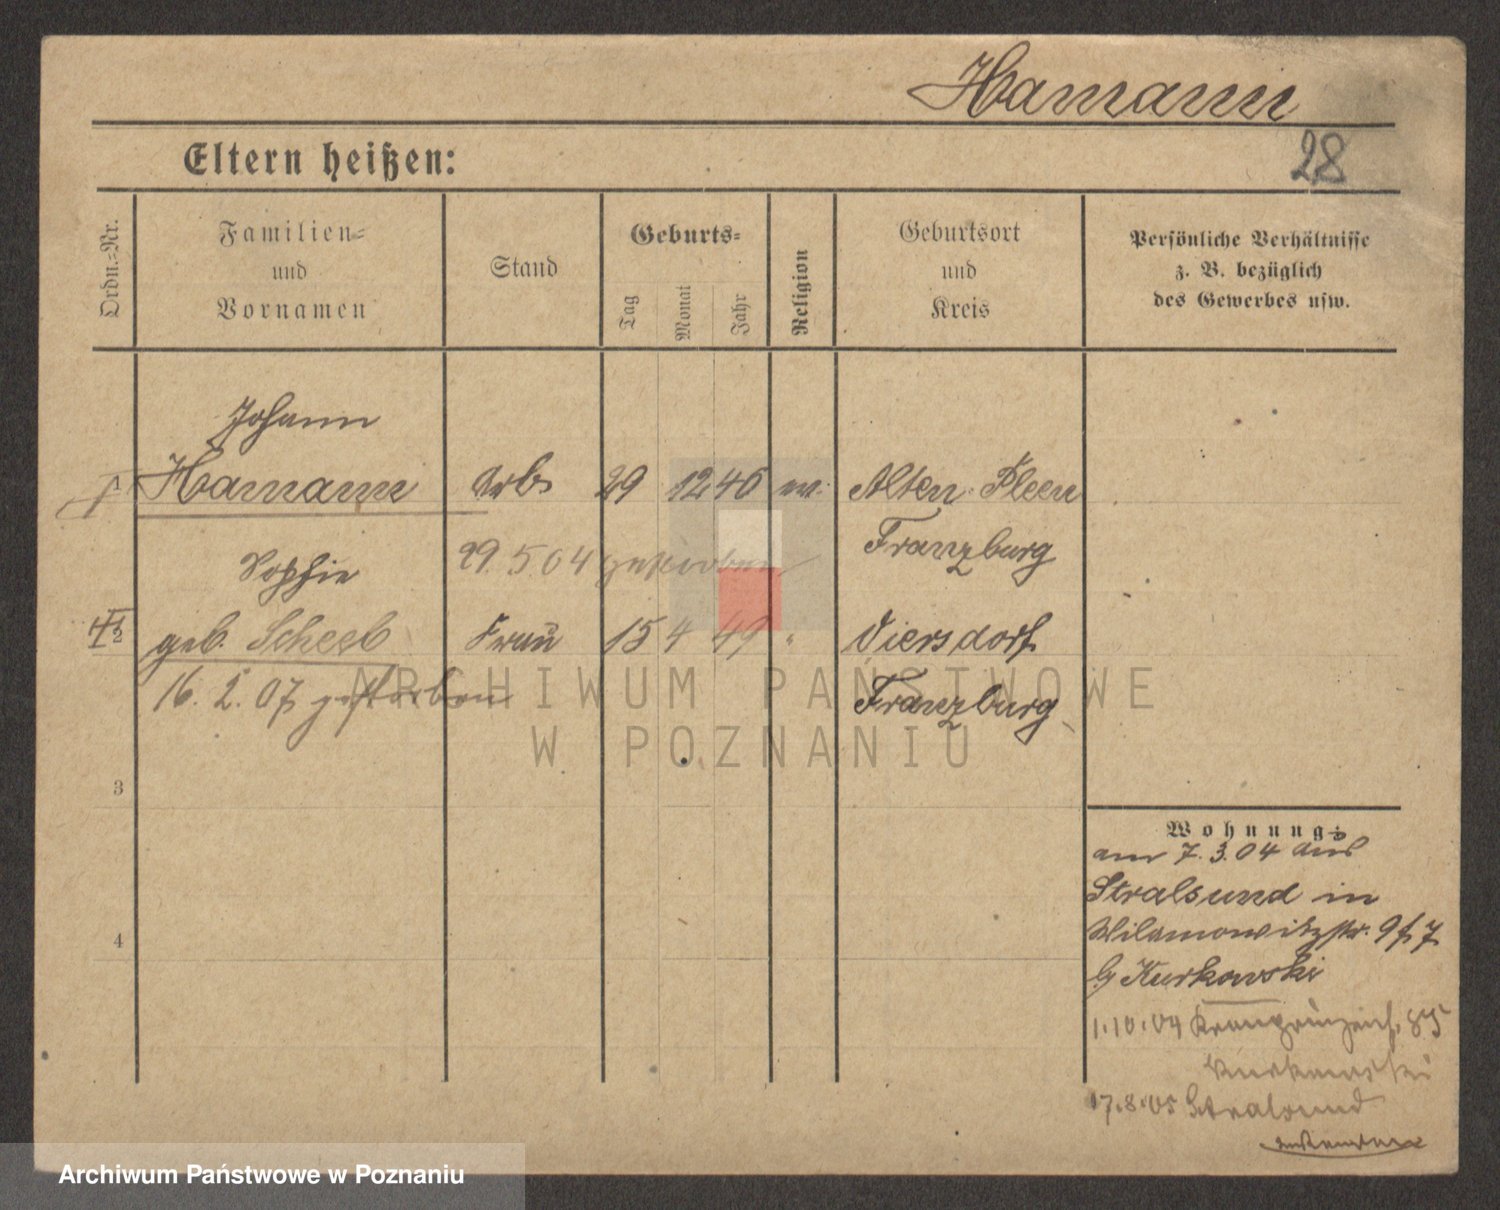 Hamann
Eltern heißen:
28
Ordn.-Nr.
Familien-
und
Vornamen
Stand
Geburts-
Tag
Monat
Jahr
Religion
Geburtsort
und
Kreis
Persönliche Verhältnisse
z. B. bezüglich
des Gewerbes usw.
Johann
1 Hamann Arb 29 12 46 ev. Alten Pleen
29. 5. 04 gestorben Franzburg
Sophie
2 geb. Scheel Frau 15 4 49 " Viersdorf
16. 2. 07 gestorben Franzburg
3
4
Wohnung:
am 7. 3. 04 aus
Stralsund in
Wilamowitzstr. 9 f. 7
b/ Kurkowski
1.10.04 Kronprinzenstr. 85
Kurkowski
17.8.05 Stralsund
ARCHIWUM PAŃSTWOWE
W POZNANIU
Archiwum Państwowe w Poznaniu